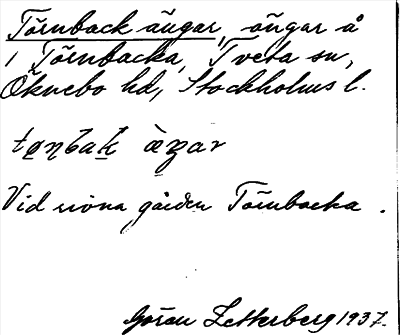 Törnback ängar, ängar å
i Törnbacka, Tveta sn,
Öknebo hd, Stockholms l.
Vid norra gården Törnbacka.
Göran Zetterberg 1937.